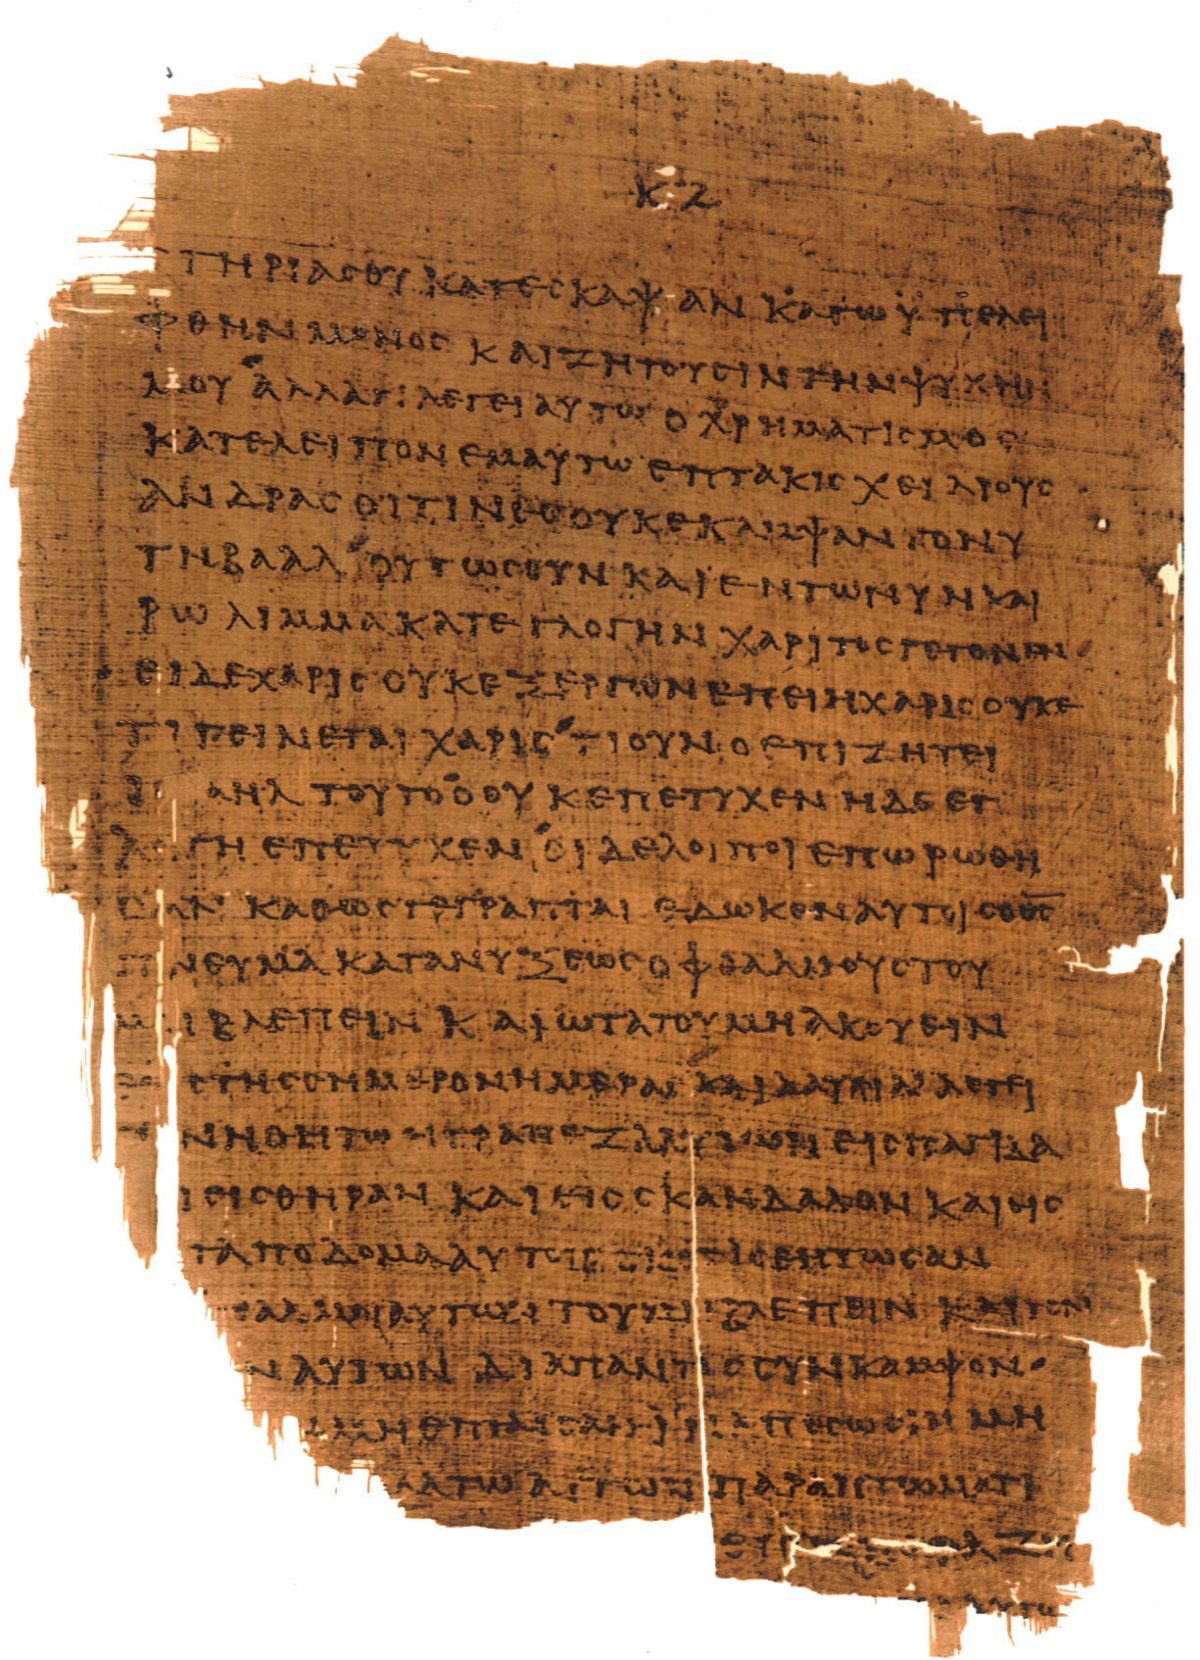 ΚΖ
ΤΗΡΙΑ ϹΟΥ ΚΑΤΕϹΚΑΨΑΝ ΚΑΓΩ ΫΠΕΛΕΙ
ΦΘΗΝ ΜΟΝΟϹ ΚΑΙ ΖΗΤΟΥϹΙΝ ΤΗΝ ΨΥΧΗΝ
ΜΟΥ ΑΛΛΑ ΤΙ ΛΕΓΕΙ ΑΥΤΩ Ο ΧΡΗΜΑΤΙϹΜΟϹ
ΚΑΤΕΛΕΙΠΟΝ ΕΜΑΥΤΩ ΕΠΤΑΚΙϹΧΕΙΛΙΟΥϹ
ΑΝΔΡΑϹ ΟΙΤΙΝΕϹ ΟΥΚ ΕΚΑΜΨΑΝ ΓΟΝΥ
ΤΗ ΒΑΑΛ ΟΥΤΩϹ ΟΥΝ ΚΑΙ ΕΝ ΤΩ ΝΥΝ ΚΑΙ
ΡΩ ΛΙΜΜΑ ΚΑΤ ΕΓΛΟΓΗΝ ΧΑΡΙΤΟϹ ΓΕΓΟΝΕΝ
ΕΙ ΔΕ ΧΑΡΙϹ ΟΥΚ ΕΞ ΕΡΓΩΝ ΕΠΕΙ Η ΧΑΡΙϹ ΟΥΚΕ
ΤΙ ΓΕΙΝΕΤΑΙ ΧΑΡΙϹ ΤΙ ΟΥΝ Ο ΕΠΙΖΗΤΕΙ
ΑΗΛ ΤΟΥΤΟ ΟΥΚ ΕΠΕΤΥΧΕΝ Η ΔΕ ΕΓ
ΛΟΓΗ ΕΠΕΤΥΧΕΝ ΟΙ ΔΕ ΛΟΙΠΟΙ ΕΠΩΡΩΘΗ
ϹΑΝ ΚΑΘΩϹ ΓΕΓΡΑΠΤΑΙ ΕΔΩΚΕΝ ΑΥΤΟΙϹ Ο ΘϹ
ΠΝΕΥΜΑ ΚΑΤΑΝΥΞΕΩϹ ΟΦΘΑΛΜΟΥϹ ΤΟΥ
ΜΗ ΒΛΕΠΕΙΝ ΚΑΙ ΩΤΑ ΤΟΥ ΜΗ ΑΚΟΥΕΙΝ
ΕΩϹ ΤΗϹ ϹΗΜΕΡΟΝ ΗΜΕΡΑϹ ΚΑΙ ΔΑΥΕΙΔ ΛΕΓΕΙ
ΓΕΝΗΘΗΤΩ Η ΤΡΑΠΕΖΑ ΑΥΤΩΝ ΕΙϹ ΠΑΓΙΔΑ
ΕΙϹ ΘΗΡΑΝ ΚΑΙ ΕΙϹ ϹΚΑΝΔΑΛΟΝ ΚΑΙ ΕΙϹ
ΤΑΠΟΔΟΜΑ ΑΥΤΟΙϹ ϹΚΟΤΙϹΘΗΤΩϹΑΝ
ΘΑΛΜΟΙ ΑΥΤΩΝ ΤΟΥ ΜΗ ΒΛΕΠΕΙΝ ΚΑΙ ΤΟΝ
Ν ΑΥΤΩΝ ΔΙΑ ΠΑΝΤΟϹ ϹΥΝΚΑΜΨΟΝ
ΜΗ ΕΠΤΑΙϹΑΝ ΙΝΑ ΠΕϹΩϹΙΝ ΜΗ
ΑΥΤΩΝ ΠΑΡΑΠΤΩΜΑΤΙ